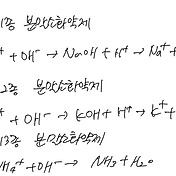 1종 분말소화약제
⁺ + OH⁻ → NaOH + H⁺ → Na⁺ +
2종 분말소화약제
⁺ + OH⁻ → KOH + H⁺ → K⁺ +
13종 분말소화약제
H₄⁺ + OH⁻ → NH₃ + H₂O